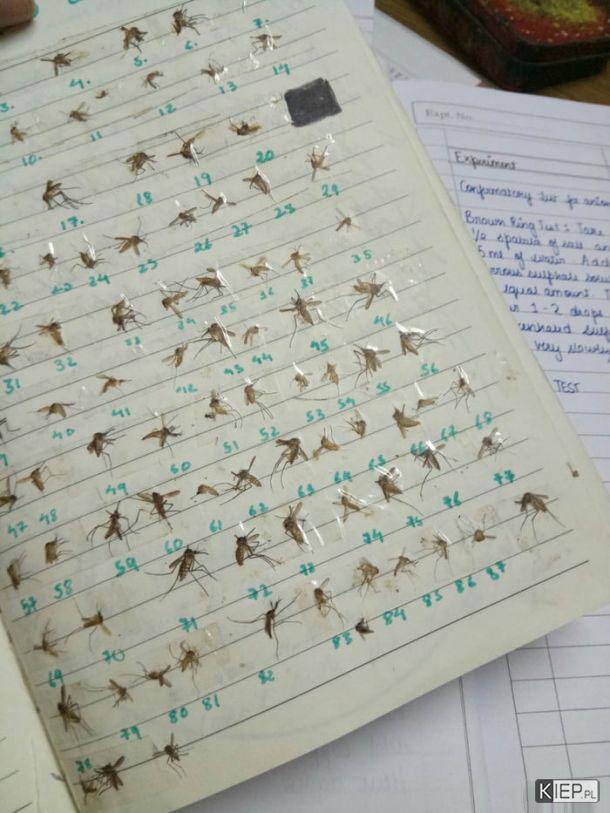 7.
3. 4. 5. 6.
10. 11 12 13 14
17. 18 19 20
22 23 24 25 26 27 28 29
31 32 33 34 35 36 37 35
40 41 42 43 44 45 46
47 48 49 50 51 52 53 54 55 56
57 58 59 60 61 62 63 64 65 66 67 68
69 70 71 72 73 74 75 76 77
78 79 80 81 82 83 84 85 86 87
Expt. No.
Experiment
Confirmatory test for anion
Brown Ring Test : Take
1/2 spatula of salt
5 ml of water. Add
sulphate
equal amount.
1-2 drops
very slowly
TEST
KIEP.PL